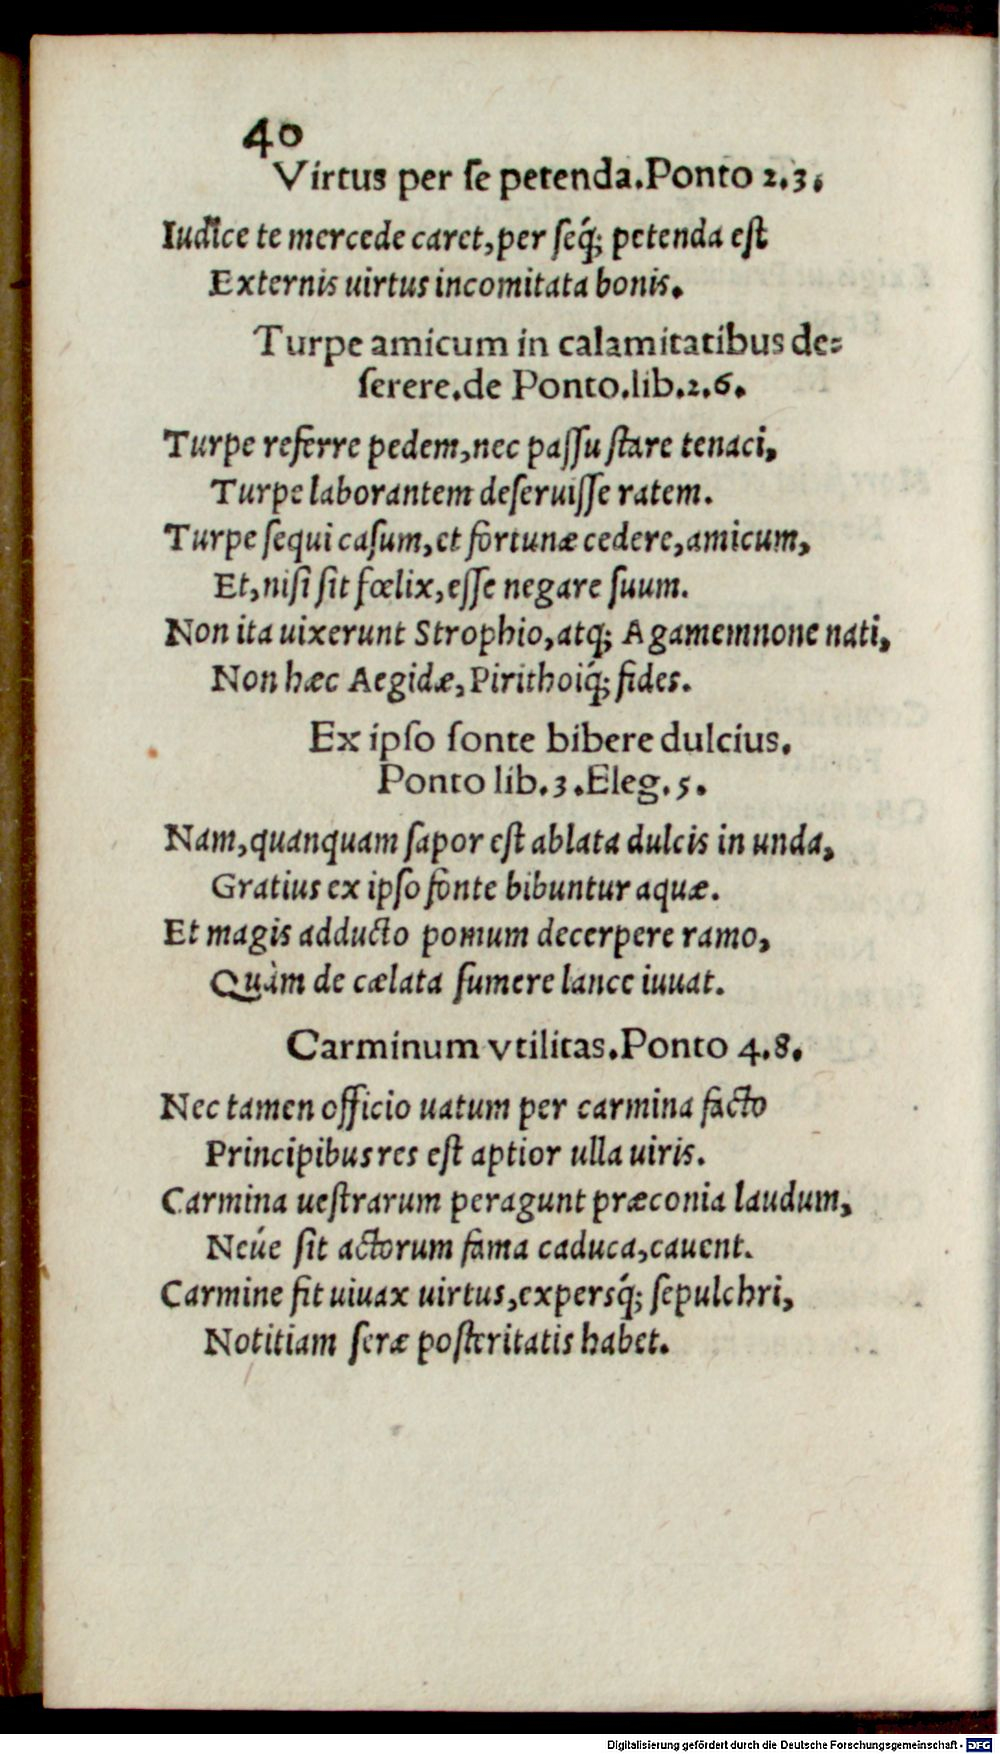 40
Virtus per ſe petenda.Ponto 2.3.
Iudice te mercede caret,per ſeq́; petenda eſt
Externis uirtus incomitata bonis.
Turpe amicum in calamitatibus de⸗
ſerere.de Ponto.lib.2.6.
Turpe referre pedem,nec paſſu ſtare tenaci,
Turpe laborantem deſeruiſſe ratem.
Turpe ſequi caſum,et fortunæ cedere,amicum,
Et,niſi ſit fœlix,eſſe negare ſuum.
Non ita uixerunt Strophio,atq; Agamemnone nati,
Non hæc Aegidæ,Pirithoiq́; fides.
Ex ipſo fonte bibere dulcius.
Ponto lib.3.Eleg.5.
Nam,quanquam ſapor eſt ablata dulcis in unda,
Gratius ex ipſo fonte bibuntur aquæ.
Et magis adducto pomum decerpere ramo,
Quàm de cælata ſumere lance iuuat.
Carminum vtilitas.Ponto 4.8.
Nec tamen officio uatum per carmina facto
Principibus res eſt aptior ulla uiris.
Carmina ueſtrarum peragunt præconia laudum,
Neúe ſit actorum fama caduca,cauent.
Carmine fit uiuax uirtus,expersq́; ſepulchri,
Notitiam ſeræ poſteritatis habet.
Digitalisierung gefördert durch die Deutsche Forschungsgemeinschaft - DFG